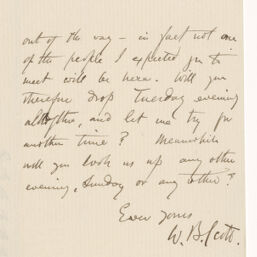 out of the way – in fact not one
of the people I expected you to
meet will be here. Will you
therefore drop Tuesday evening
altogether, and let me try for
another time? Meanwhile
will you look us up any other
evening, Sunday or any other?
Ever yours
W. B. Scott.